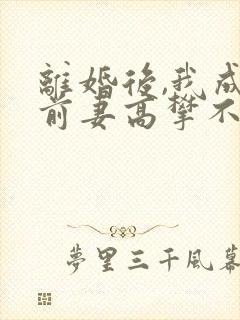 離婚後,我成
前妻高攀不
夢里三千風幕